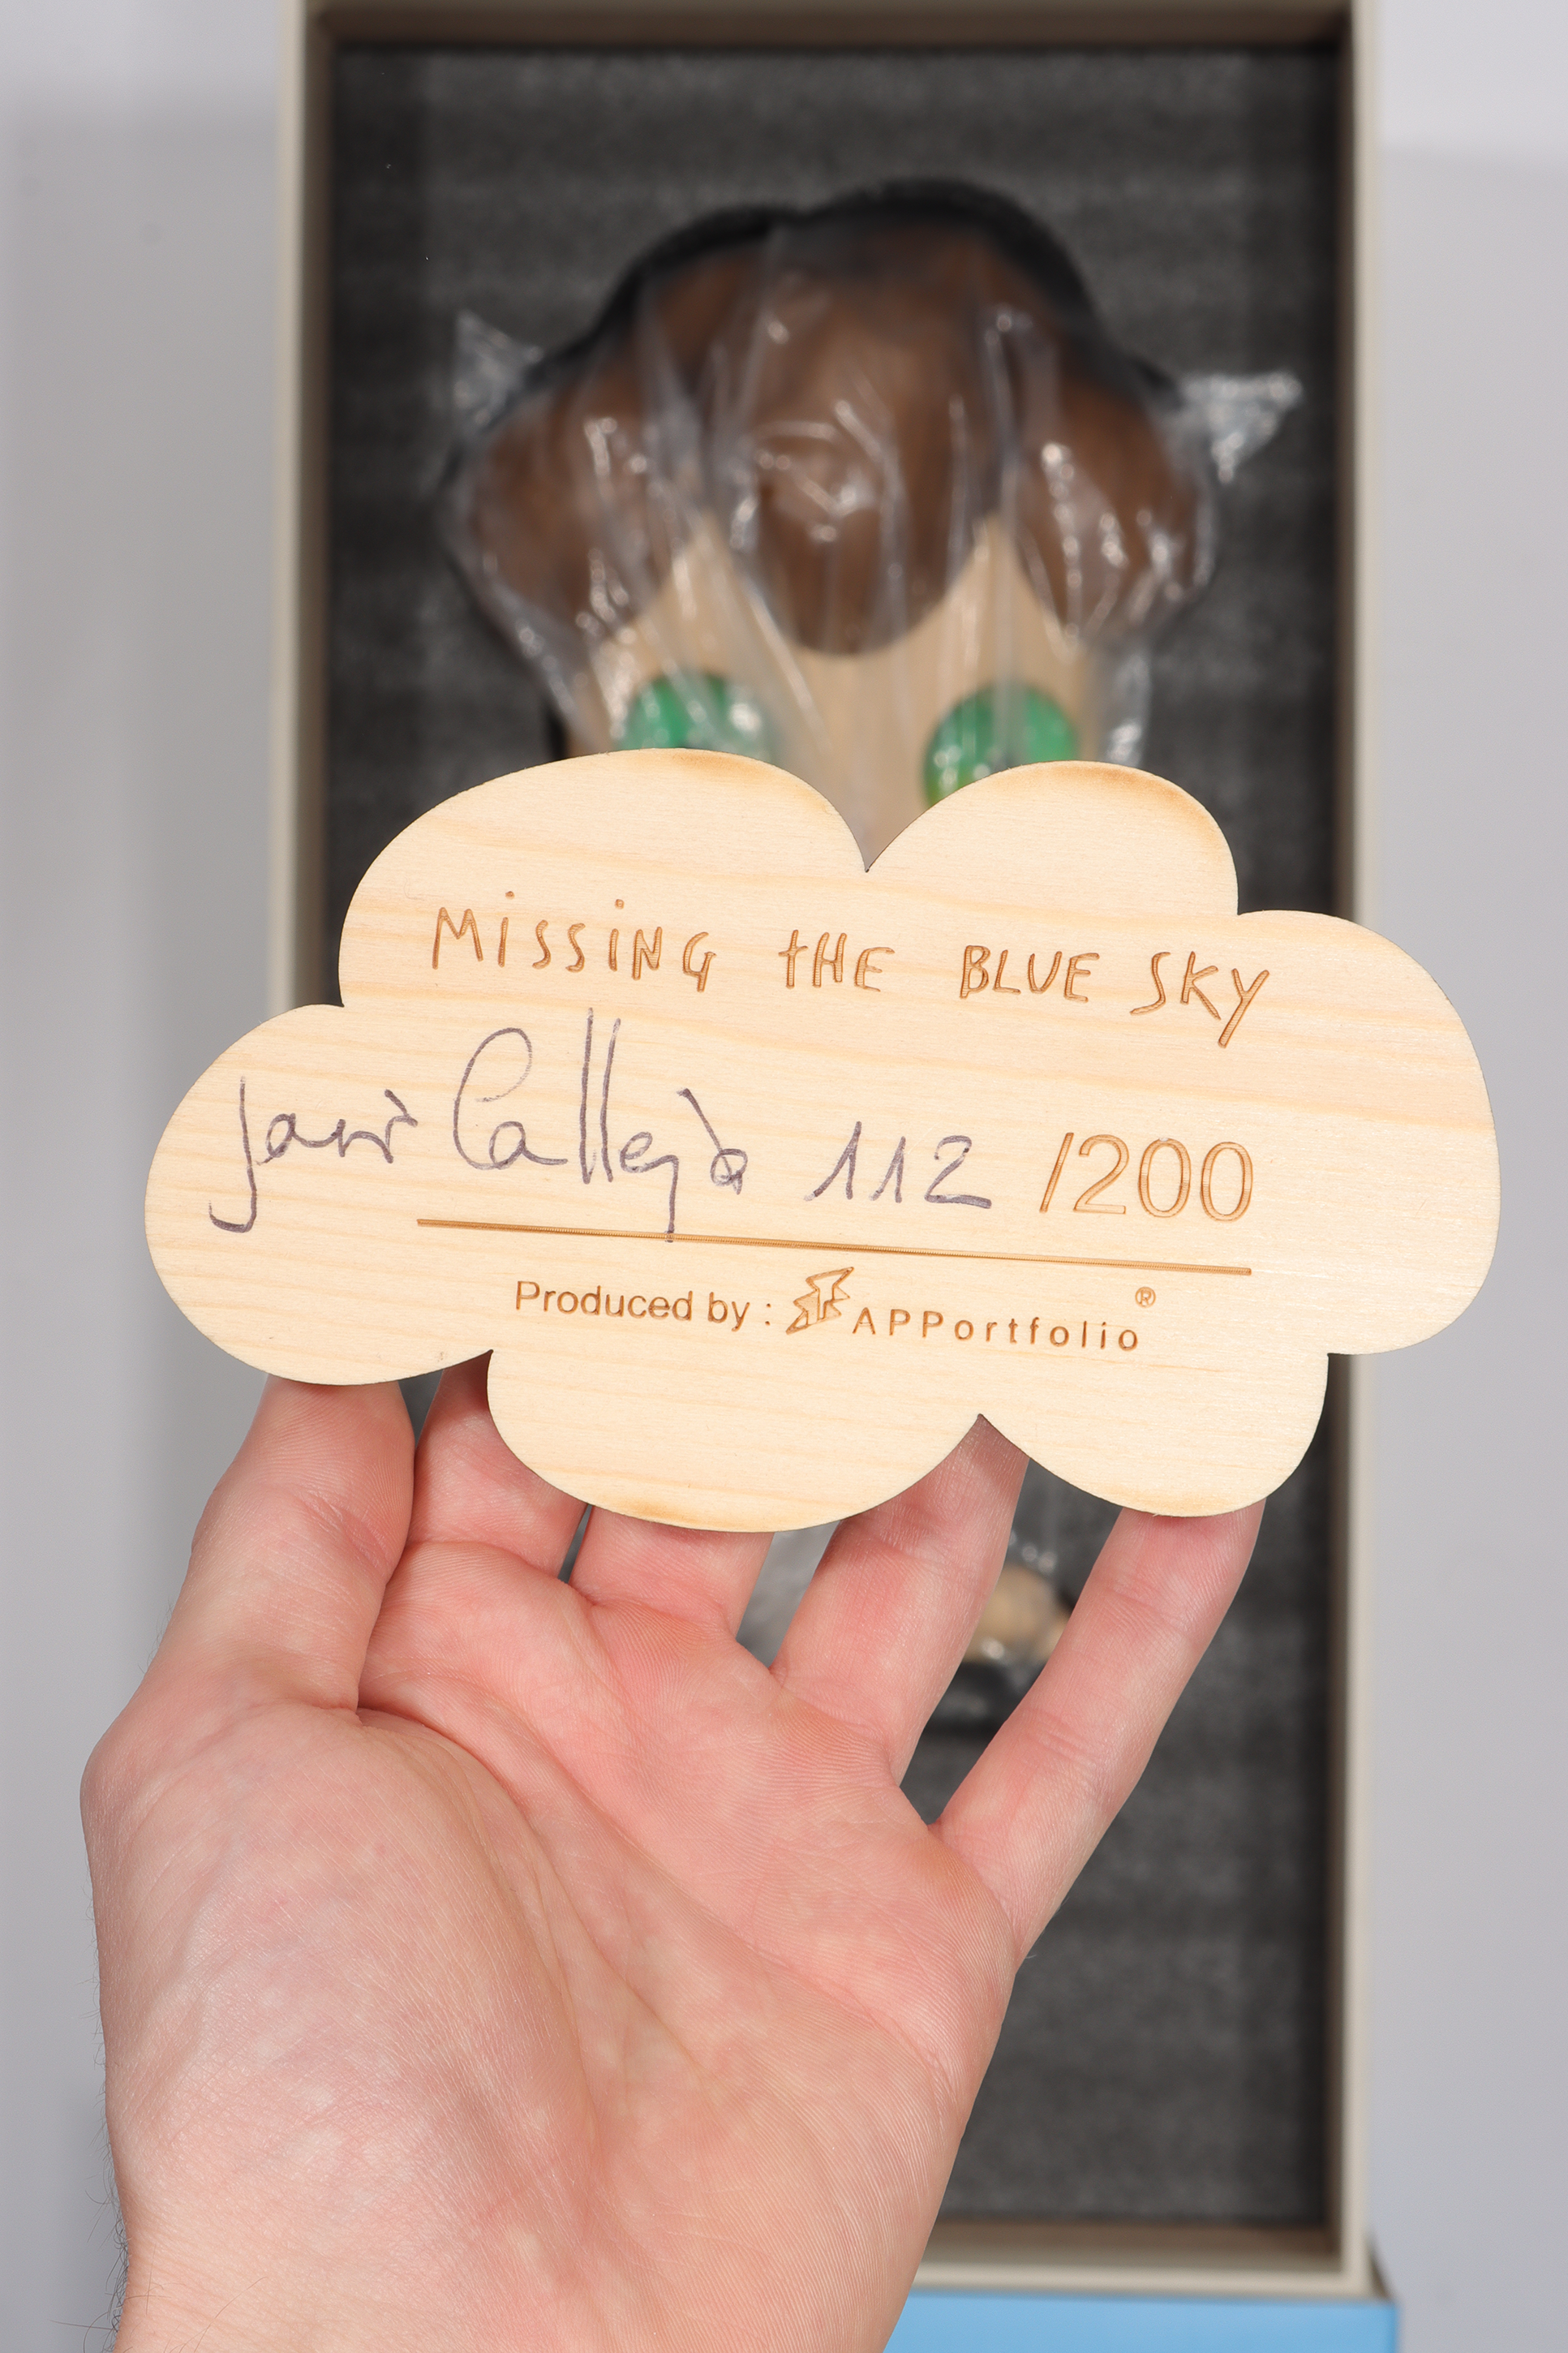 MiSSiNG tHE BLUE SKY
Javi Calleja 112 /200
Produced by : APPortfolio ®